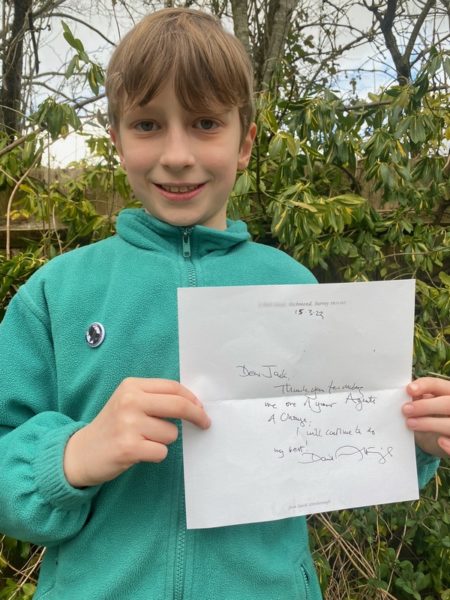 Richmond Surrey
15.3.22
Dear Jack,
Thank you for making
me one of your Agents
of Change.
I will continue to do
my best! David